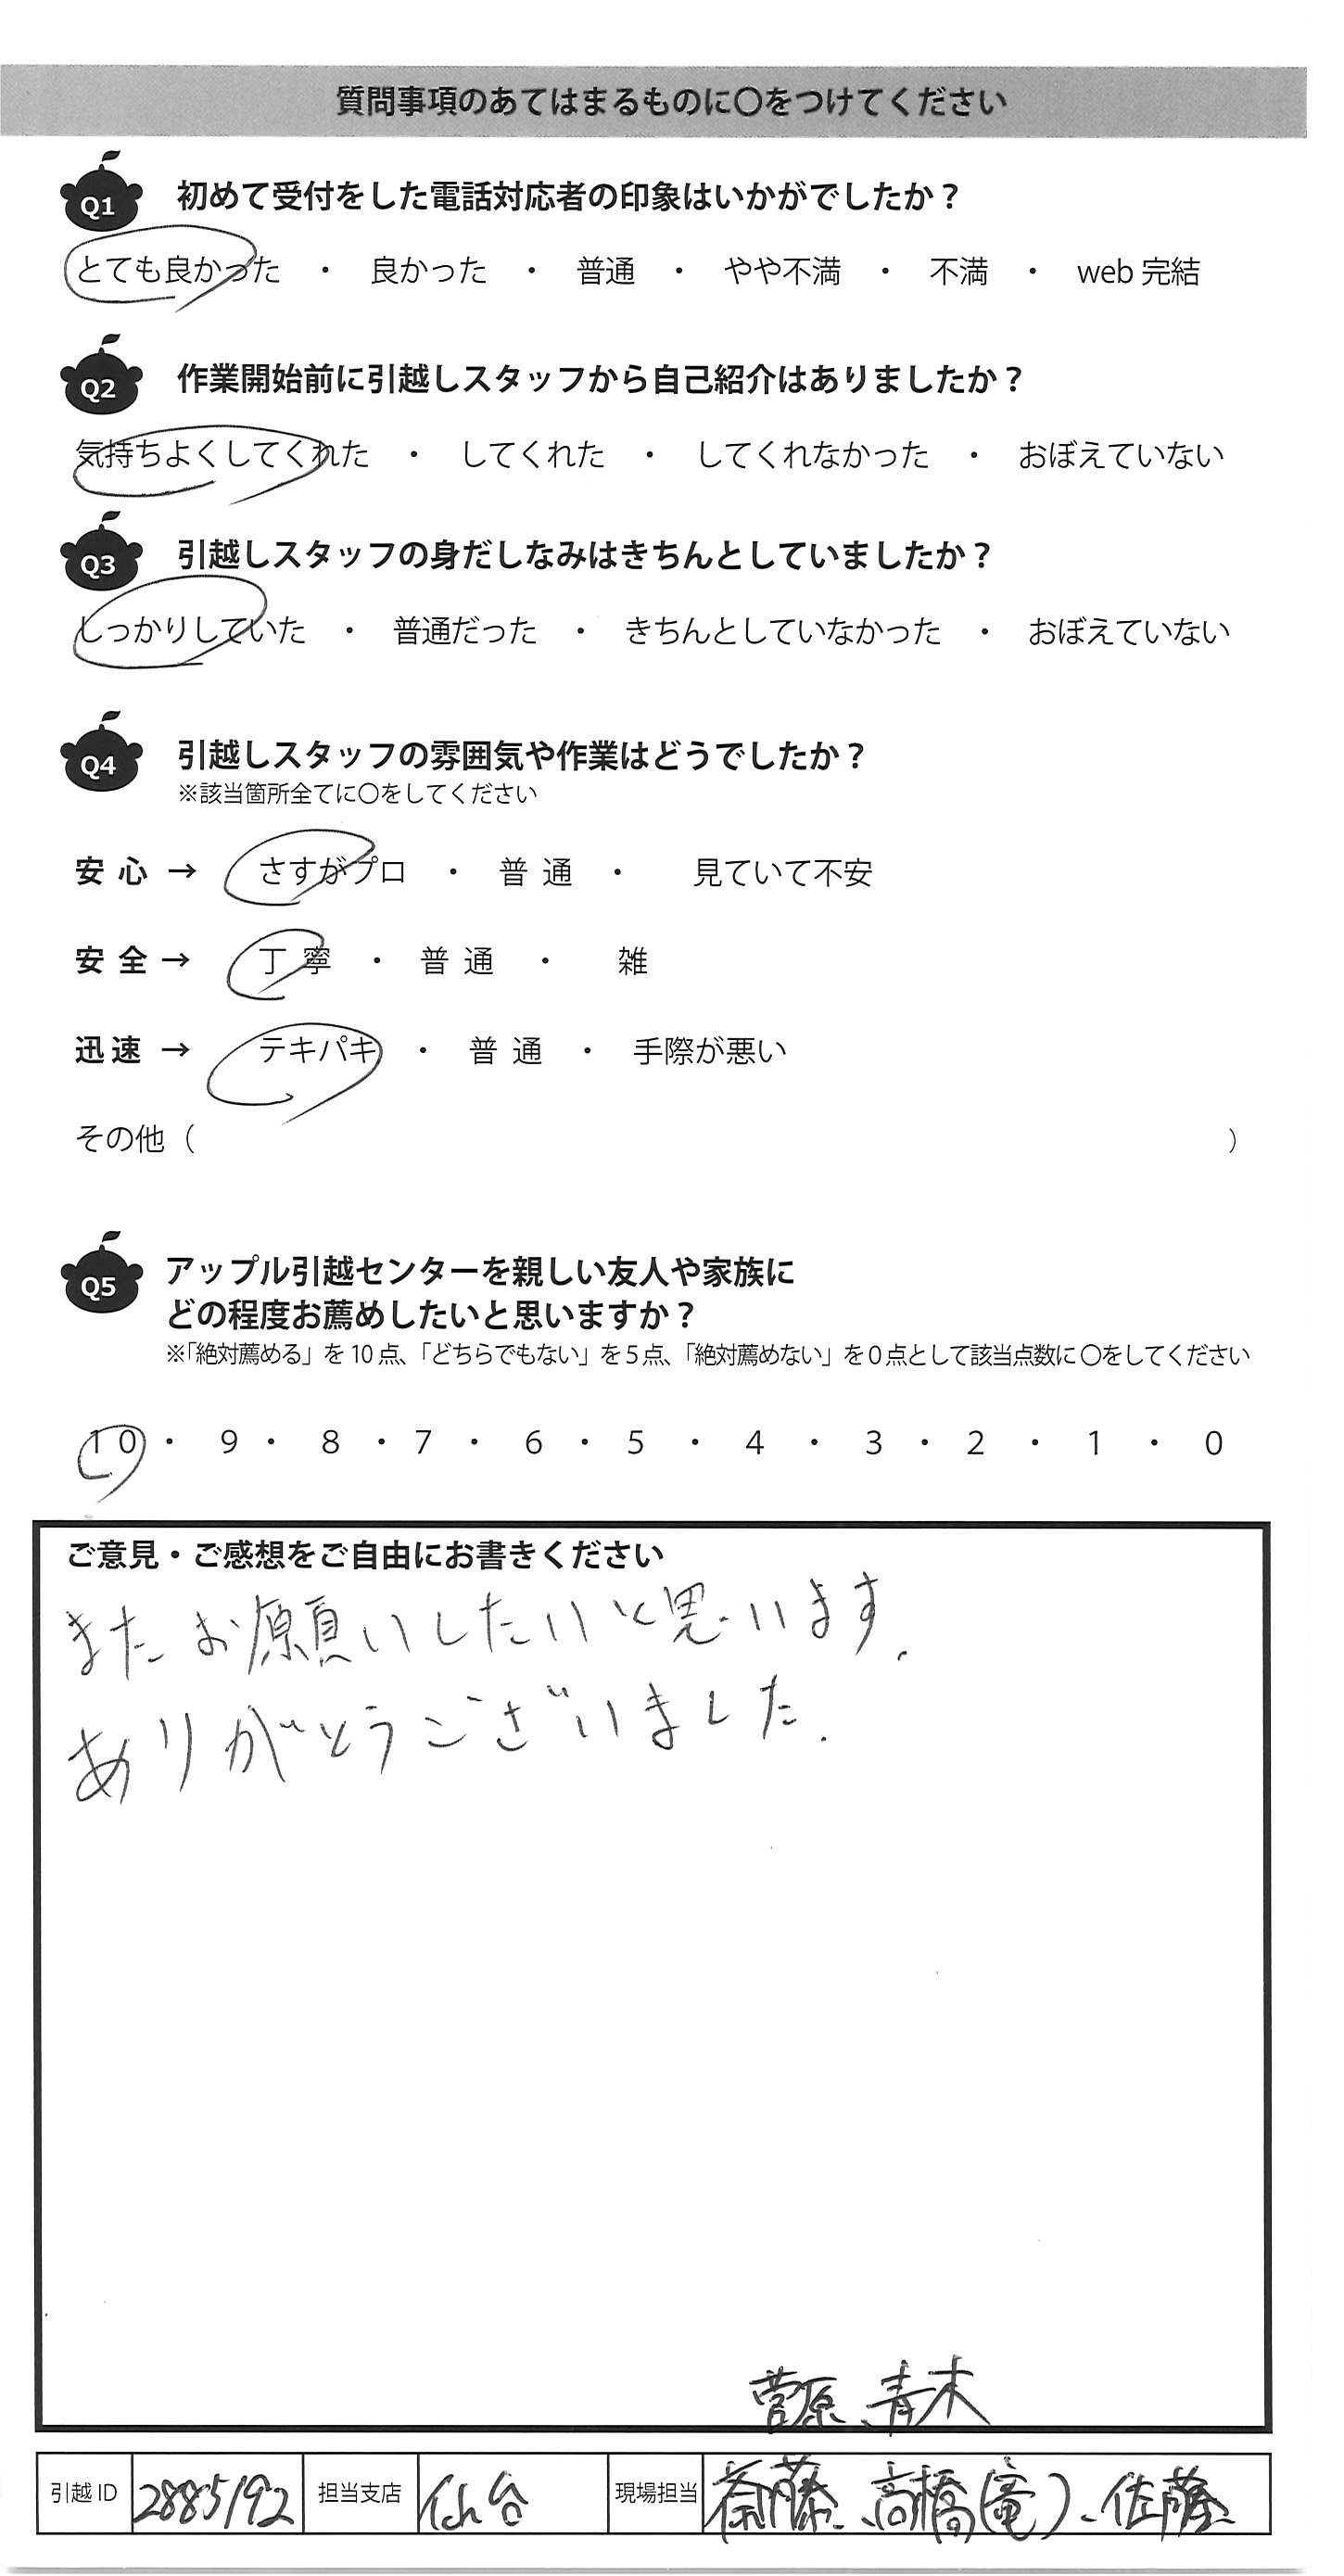 質問事項のあてはまるものに〇をつけてください
Q1 初めて受付をした電話対応者の印象はいかがでしたか？
とても良かった ・ 良かった ・ 普通 ・ やや不満 ・ 不満 ・ web 完結
Q2 作業開始前に引越しスタッフから自己紹介はありましたか？
気持ちよくしてくれた ・ してくれた ・ してくれなかった ・ おぼえていない
Q3 引越しスタッフの身だしなみはきちんとしていましたか？
しっかりしていた ・ 普通だった ・ きちんとしていなかった ・ おぼえていない
Q4 引越しスタッフの雰囲気や作業はどうでしたか？
※該当箇所全てに〇をしてください
安心 → さすがプロ ・ 普通 ・ 見ていて不安
安全 → 丁寧 ・ 普通 ・ 雑
迅速 → テキパキ ・ 普通 ・ 手際が悪い
その他（ ）
Q5 アップル引越センターを親しい友人や家族に
どの程度お薦めしたいと思いますか？
※「絶対薦める」を 10 点、「どちらでもない」を 5 点、「絶対薦めない」を 0 点として該当点数に〇をしてください
10 ・ 9 ・ 8 ・ 7 ・ 6 ・ 5 ・ 4 ・ 3 ・ 2 ・ 1 ・ 0
ご意見・ご感想をご自由にお書きください
またお願いしたいと思います.
ありがとうございました.
菅原、青木
引越 ID 2885192 担当支店 仙台 現場担当 斎藤、高橋(竜)、佐藤